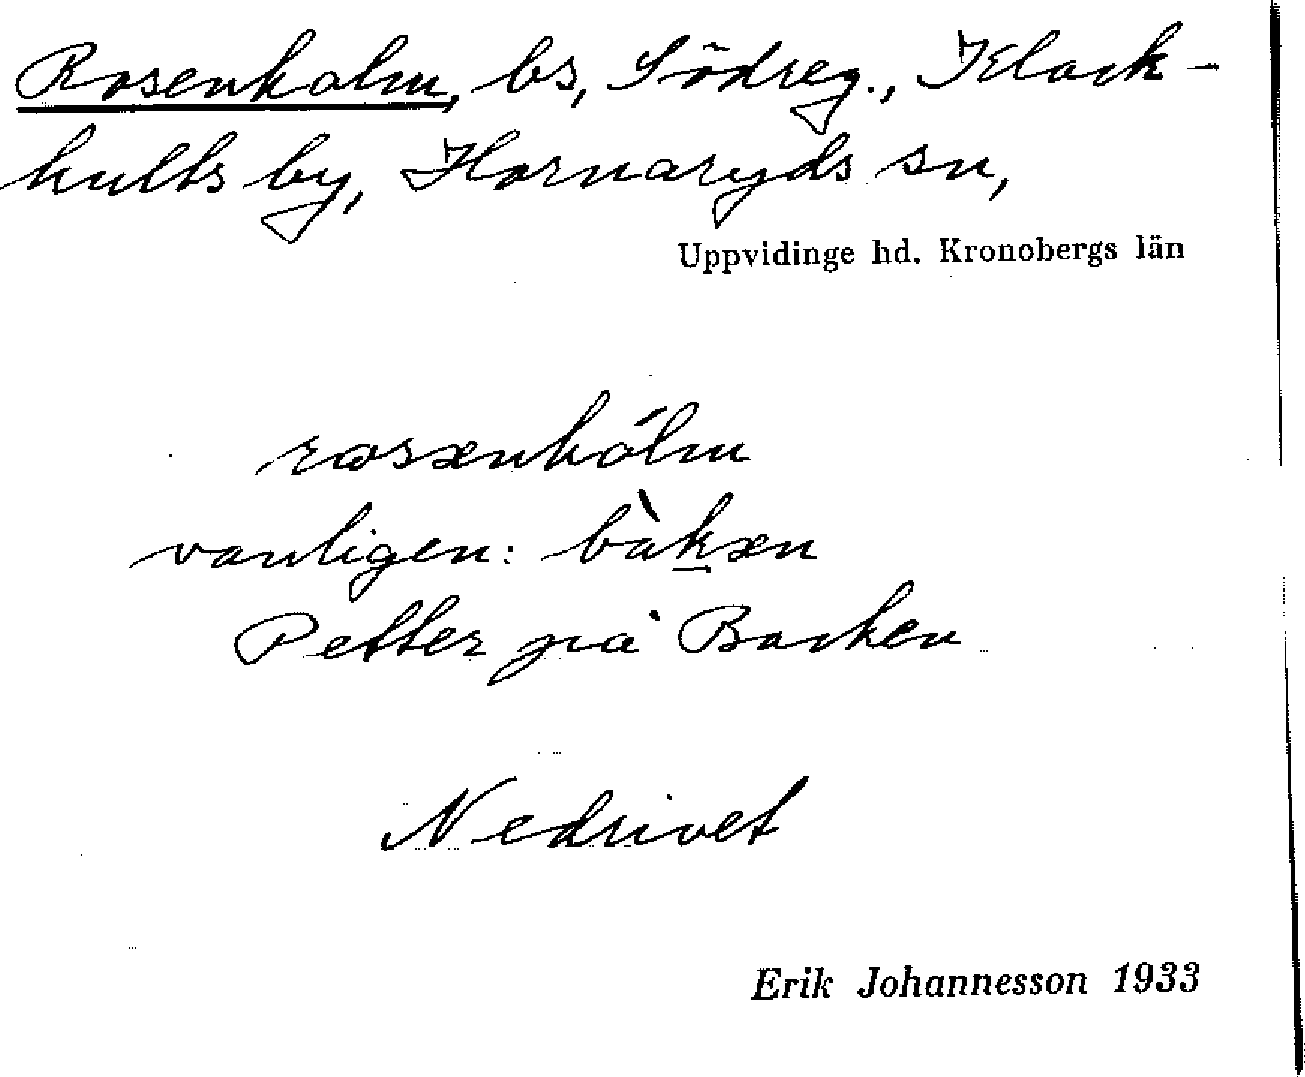 Rosenholm, bs, Södreg., Klack-
hults by, Hornaryds sn,
Uppvidinge hd. Kronobergs län
rosənhólm
vanligen: bàkən
Petter på Backen
Nedrivet
Erik Johannesson 1933